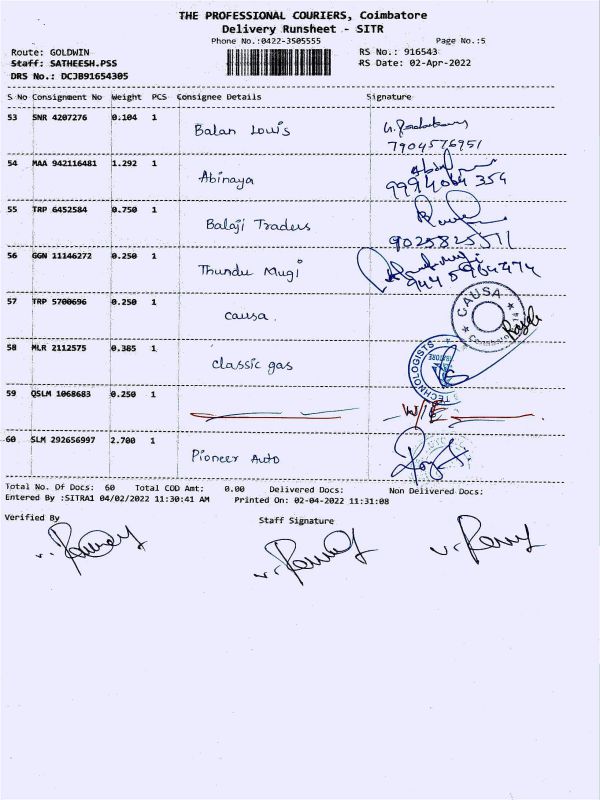 THE PROFESSIONAL COURIERS, Coimbatore
Delivery Runsheet - SITR
Phone No.:0422-3505555 Page No.:5
Route: GOLDWIN RS No.: 916543
Staff: SATHEESH.PSS RS Date: 02-Apr-2022
DRS No.: DCJB91654305
S No Consignment No Weight PCS Consignee Details Signature
53 SNR 4207276 0.104 1 Balan Louis
7904576951
54 MAA 942116481 1.292 1 Abinaya
9994064 354
55 TRP 6452584 0.750 1 Balaji Traders
9025825511
56 GGN 11146272 0.250 1 Thundu Mugi
57 TRP 5700696 0.250 1 causa. CAUSA
58 MLR 2112575 0.385 1 classic gas TECHNOLOGISTS
59 QSLM 1068683 0.250 1
60 SLM 292656997 2.700 1 Pioneer Auto
Total No. Of Docs: 60 Total COD Amt: 0.00 Delivered Docs: Non Delivered Docs:
Entered By :SITRA1 04/02/2022 11:30:41 AM Printed On: 02-04-2022 11:31:08
Verified By Staff Signature